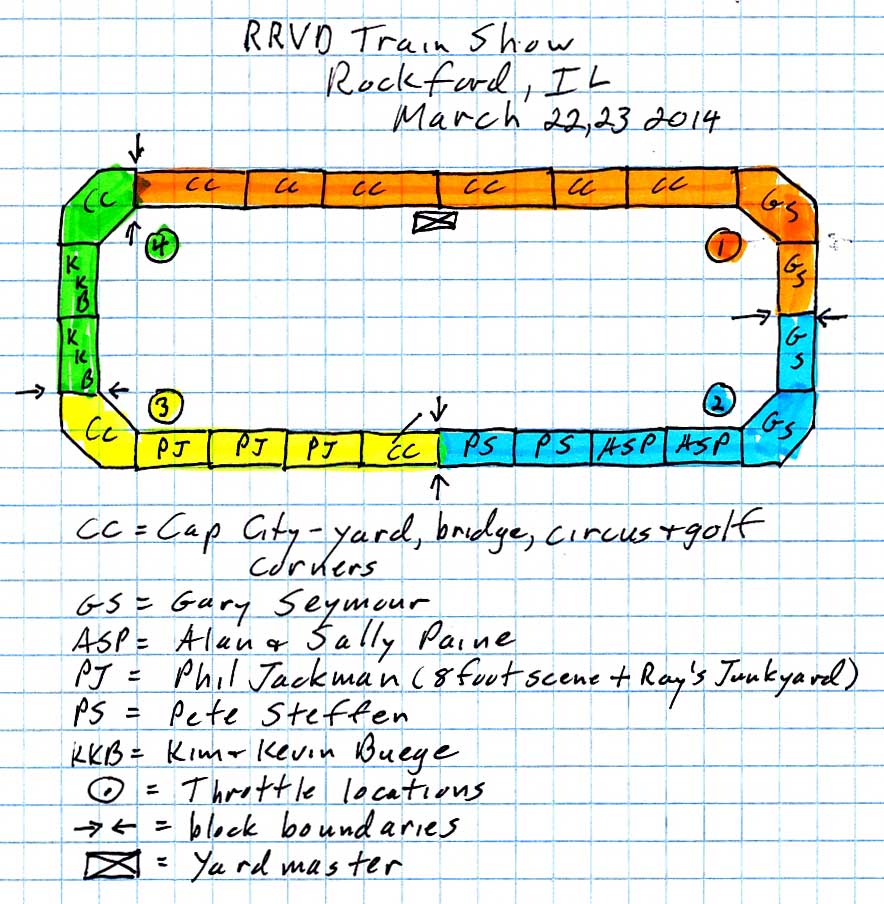 RRVD Train Show
Rockford, IL
March 22,23 2014
CC CC CC CC CC CC CC GS
4 1
KKB GS
KKB GS
3 2
CC PJ PJ PJ CC PS PS ASP ASP GS
CC = Cap City - yard, bridge, circus + golf
corners
GS = Gary Seymour
ASP = Alan & Sally Paine
PJ = Phil Jackman (8 foot scene + Ray's Junkyard)
PS = Pete Steffen
KKB = Kim & Kevin Buege
= Throttle locations
→← = block boundaries
= Yardmaster